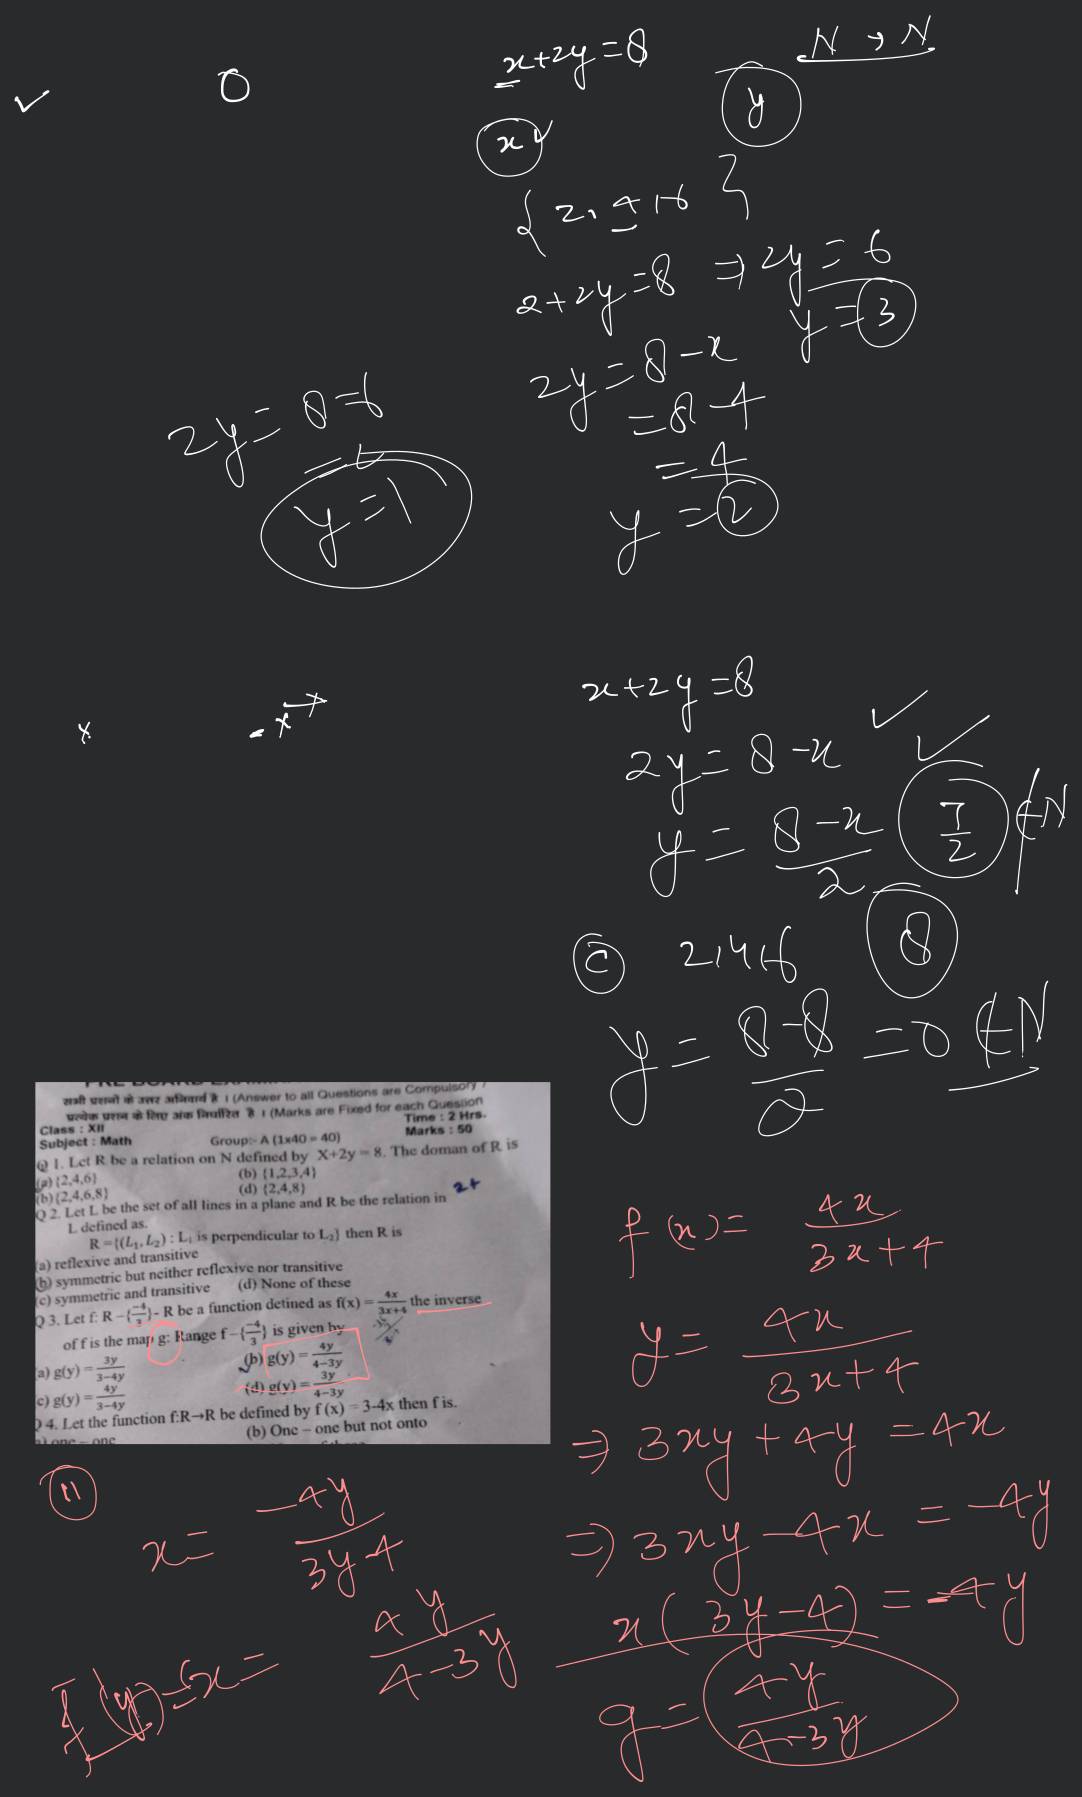 x+2y=8
N → N
x
y
{2, 4, 6}
2+2y=8 ⇒ 2y=6
y=3
2y=8-x
=8-4
=4
y=2
2y=8-6
y=1
x+2y=8
2y=8-x
y=8-x/2
7/2 ∉N
C 2,4,6 8
y=8-8/2=0 ∉N
सभी प्रश्नों के उत्तर अनिवार्य है । (Answer to all Questions are Compulsory
प्रत्येक प्रश्न के लिए अंक निर्धारित है । (Marks are Fixed for each Question
Class : XII Time : 2 Hrs.
Subject : Math Group:- A (1x40 = 40) Marks : 50
Q 1. Let R be a relation on N defined by X+2y = 8. The doman of R is
(a) {2,4,6} (b) {1,2,3,4}
(b) {2,4,6,8} (d) {2,4,8}
Q 2. Let L be the set of all lines in a plane and R be the relation in
L defined as.
R={(L₁, L₂) : L₁ is perpendicular to L₂} then R is
(a) reflexive and transitive
(b) symmetric but neither reflexive nor transitive
(c) symmetric and transitive (d) None of these
Q 3. Let f: R -{-4/3}- R be a function detined as f(x) = 4x/3x+4 the inverse
of f is the map g: Range f -{-4/3} is given by
(a) g(y) = 3y/3-4y (b) g(y) = 4y/4-3y
(c) g(y) = 4y/3-4y (d) g(y) = 3y/4-3y
Q 4. Let the function f:R→R be defined by f (x) = 3-4x then f is.
(a) one - one (b) One – one but not onto
f(x)=4x/3x+4
y=4x/3x+4
⇒ 3xy+4y=4x
⇒ 3xy-4x=-4y
x(3y-4)=-4y
g=4y/4-3y
11
x=-4y/3y-4
x=4y/4-3y